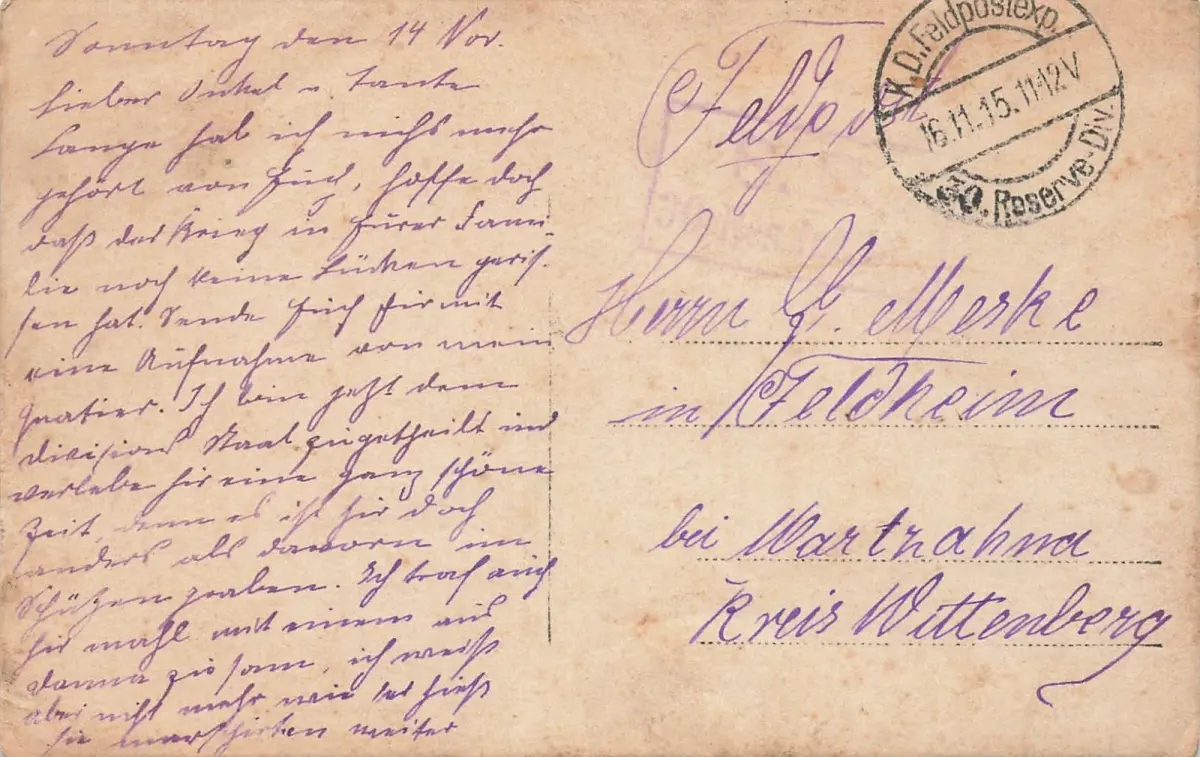 Sonntag den 14 Nov.
Lieber Onkel u. Tante
Lange hab ich nichs mehr
gehört von Euch, hoffe doch
daß der Krieg in Eurer Fami-
lie noch keine Lücken geris-
sen hat. Sende Euch hir mit
eine Aufnahme von mein
Quatier. Ich bin jetzt dem
Divisions Staab zugetheilt und
verlebe hir eine ganz schöne
Zeit, denn es ist hir doch
anders als davorn im
Schützen graben. Ich traf auch
hir mahl mit einem aus
Danna zu sam, ich weiß
aber nicht mehr wie er hieß
sie marschirten weiter
Feldpost
K.D. Feldpostexp.
16.11.15. 11-12 V
30. Reserve-Div.
Herrn G. Meske
in Feldheim
bei Wartzahna
Kreis Wittenberg